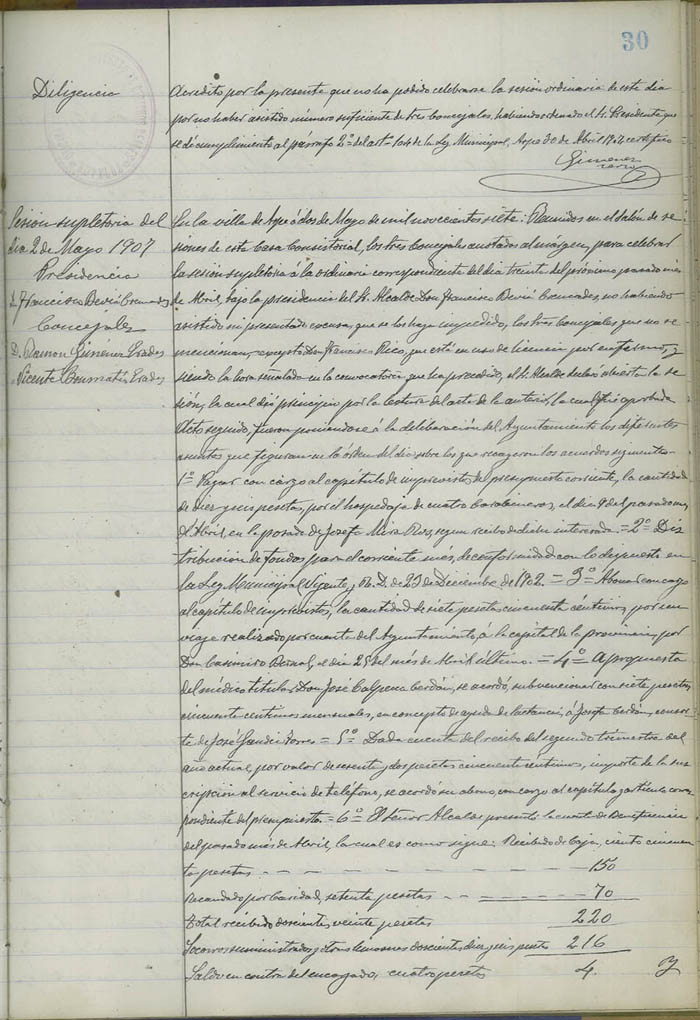 30
Diligencia
Acredito por la presente que no ha podido celebrarse la sesión ordinaria de este dia
por no haber asistido número suficiente de tres Concejales, habiendo ordenado el Sr. Presidente que
se dé cumplimiento al párrafo 2º del art. 104 de la Ley Municipal, Aspe 30 de Abril 1907, certifico
Gimenez
Sesion supletoria del
dia 2 de Mayo 1907
Presidencia
D. Francisco
Concejales
D. Ramon Giménez
Vicente
En la villa de Aspe á dos de Mayo de mil novecientos siete: Reunidos en el Salón de se-
siones de esta Casa Consistorial, los tres Concejales anotados al márgen, para celebrar
la sesión supletoria á la ordinaria correspondiente del dia treinta del próximo pasado mes
de Abril, bajo la presidencia del Sr. Alcalde Don Francisco no habiendo
asistido ni presentado excusa que se los haya impedido, los tres Concejales que no se
mencionan, excepto Don Francisco Rico, que está en uso de licencia por enfermo, y
siendo la hora señalada en la convocatoria que ha precedido, el Sr. Alcalde declaró abierta la se-
sión, la cual dió principio por la lectura del acta de la anterior, la cual fué aprobada
Acto seguido, fueron poniendose á la deliberación del Ayuntamiento los diferentes
asuntos que figuran en la órden del dia sobre los que recayeron los acuerdos siguientes.
1º Pagar con cargo al capítulo de imprevistos del presupuesto corriente, la cantidad
de diez y seis pesetas, por el hospedaje de cuatro Carabineros, el dia 9 del pasado mes
de Abril, en la posada de Josefa Mira segun recibo de dicha interesada. = 2º Dis
tribucion de fondos para el corriente mes, de conformidad con lo dispuesto en
la Ley Municipal vigente y R. D. de 23 de Diciembre de 1902. = 3º Abonar con cargo
al capítulo de imprevistos, la cantidad de siete pesetas cincuenta céntimos, por un
viaje realizado por cuenta del Ayuntamiento, á la capital de la provincia, por
Don Casimiro el dia 25 del més de Abril último. = 4º A propuesta
del médico titular Don José Calpena Cerdán, se acordó, subvencionar con siete pesetas
cincuenta centimos mensuales, en concepto de ayuda de lactancia, á Josefa Cerdán, consor
te de José Torres = 5º Dada cuenta del recibo del segundo trimestre del
año actual, por valor de sesenta y dos pesetas cincuenta centimos, importe de la sus
cripcion al servicio de teléfono, se acordó su abono, con cargo al capítulo y articulo corres
pondiente del presupuesto. = 6º El Señor Alcalde presentó la cuenta de Beneficencia
del pasado més de Abril, la cual es como sigue: Recibido de Caja, ciento cincuen
ta pesetas - - - - - - 150
Recaudado por Caridad, setenta pesetas - - - 70
Total recibido doscientas veinte pesetas 220
Socorros suministrados y otras limosnas doscientas diez y seis pesetas 216
Saldo en contra del encargado, cuatro pesetas 4